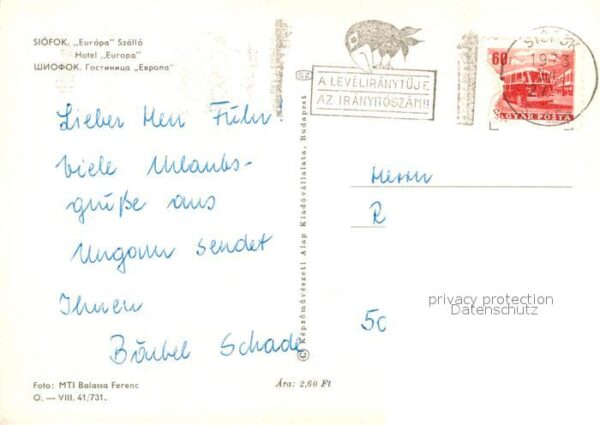 SIÓFOK. „Európa" Szálló
Hotel „Europa"
ШИОФОК. Гостиница „Европа"
A LEVÉLIRÁNYTŰJE
AZ IRÁNYÍTÓSZÁM!!
SIÓFOK
1973
60
MAGYAR POSTA
Lieber Herr Führ!
viele Urlaubs-
grüße aus
Ungarn sendet
Ihnen
Bärbel Schade
© Képzőművészeti Alap Kiadóvállalata, Budapest
Herrn
R
50
privacy protection
Datenschutz
Foto: MTI Balassa Ferenc
O. — VIII. 41/731.
Ára: 2,60 Ft